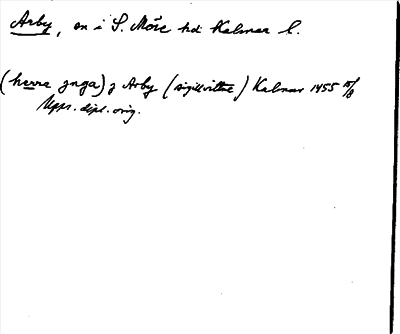 Arby, sn i S. Möre hd Kalmar l.
(herre ynga) j Arby (sigillvittne) Kalmar 1455 15/8
Upps. dipl. orig.